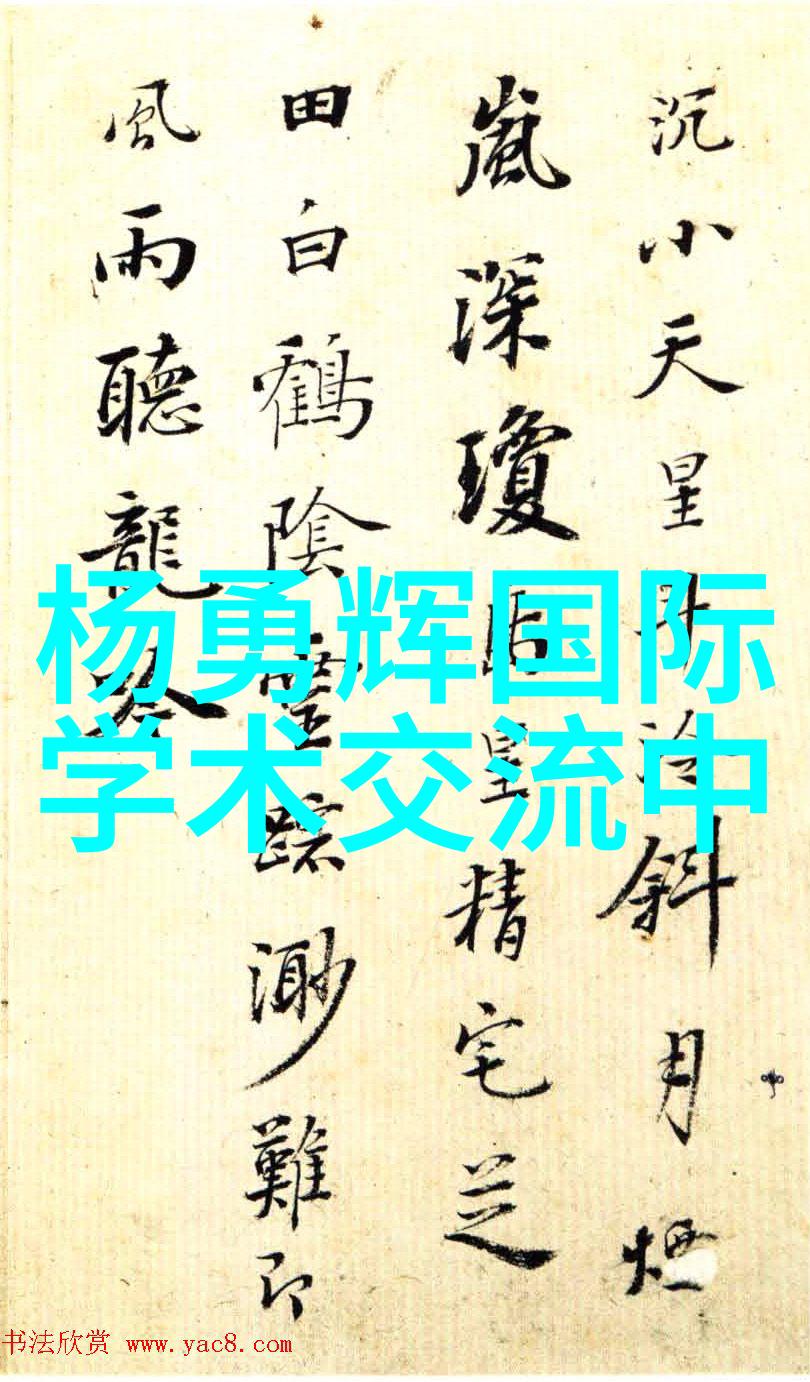 沉小天星斗冷斜月煙
嵐深瓊皇精宅芝
田白鶴陰渺難即
風雨聽龍吟
杨勇辉国际
学术交流中
书法欣赏 www.yac8.com